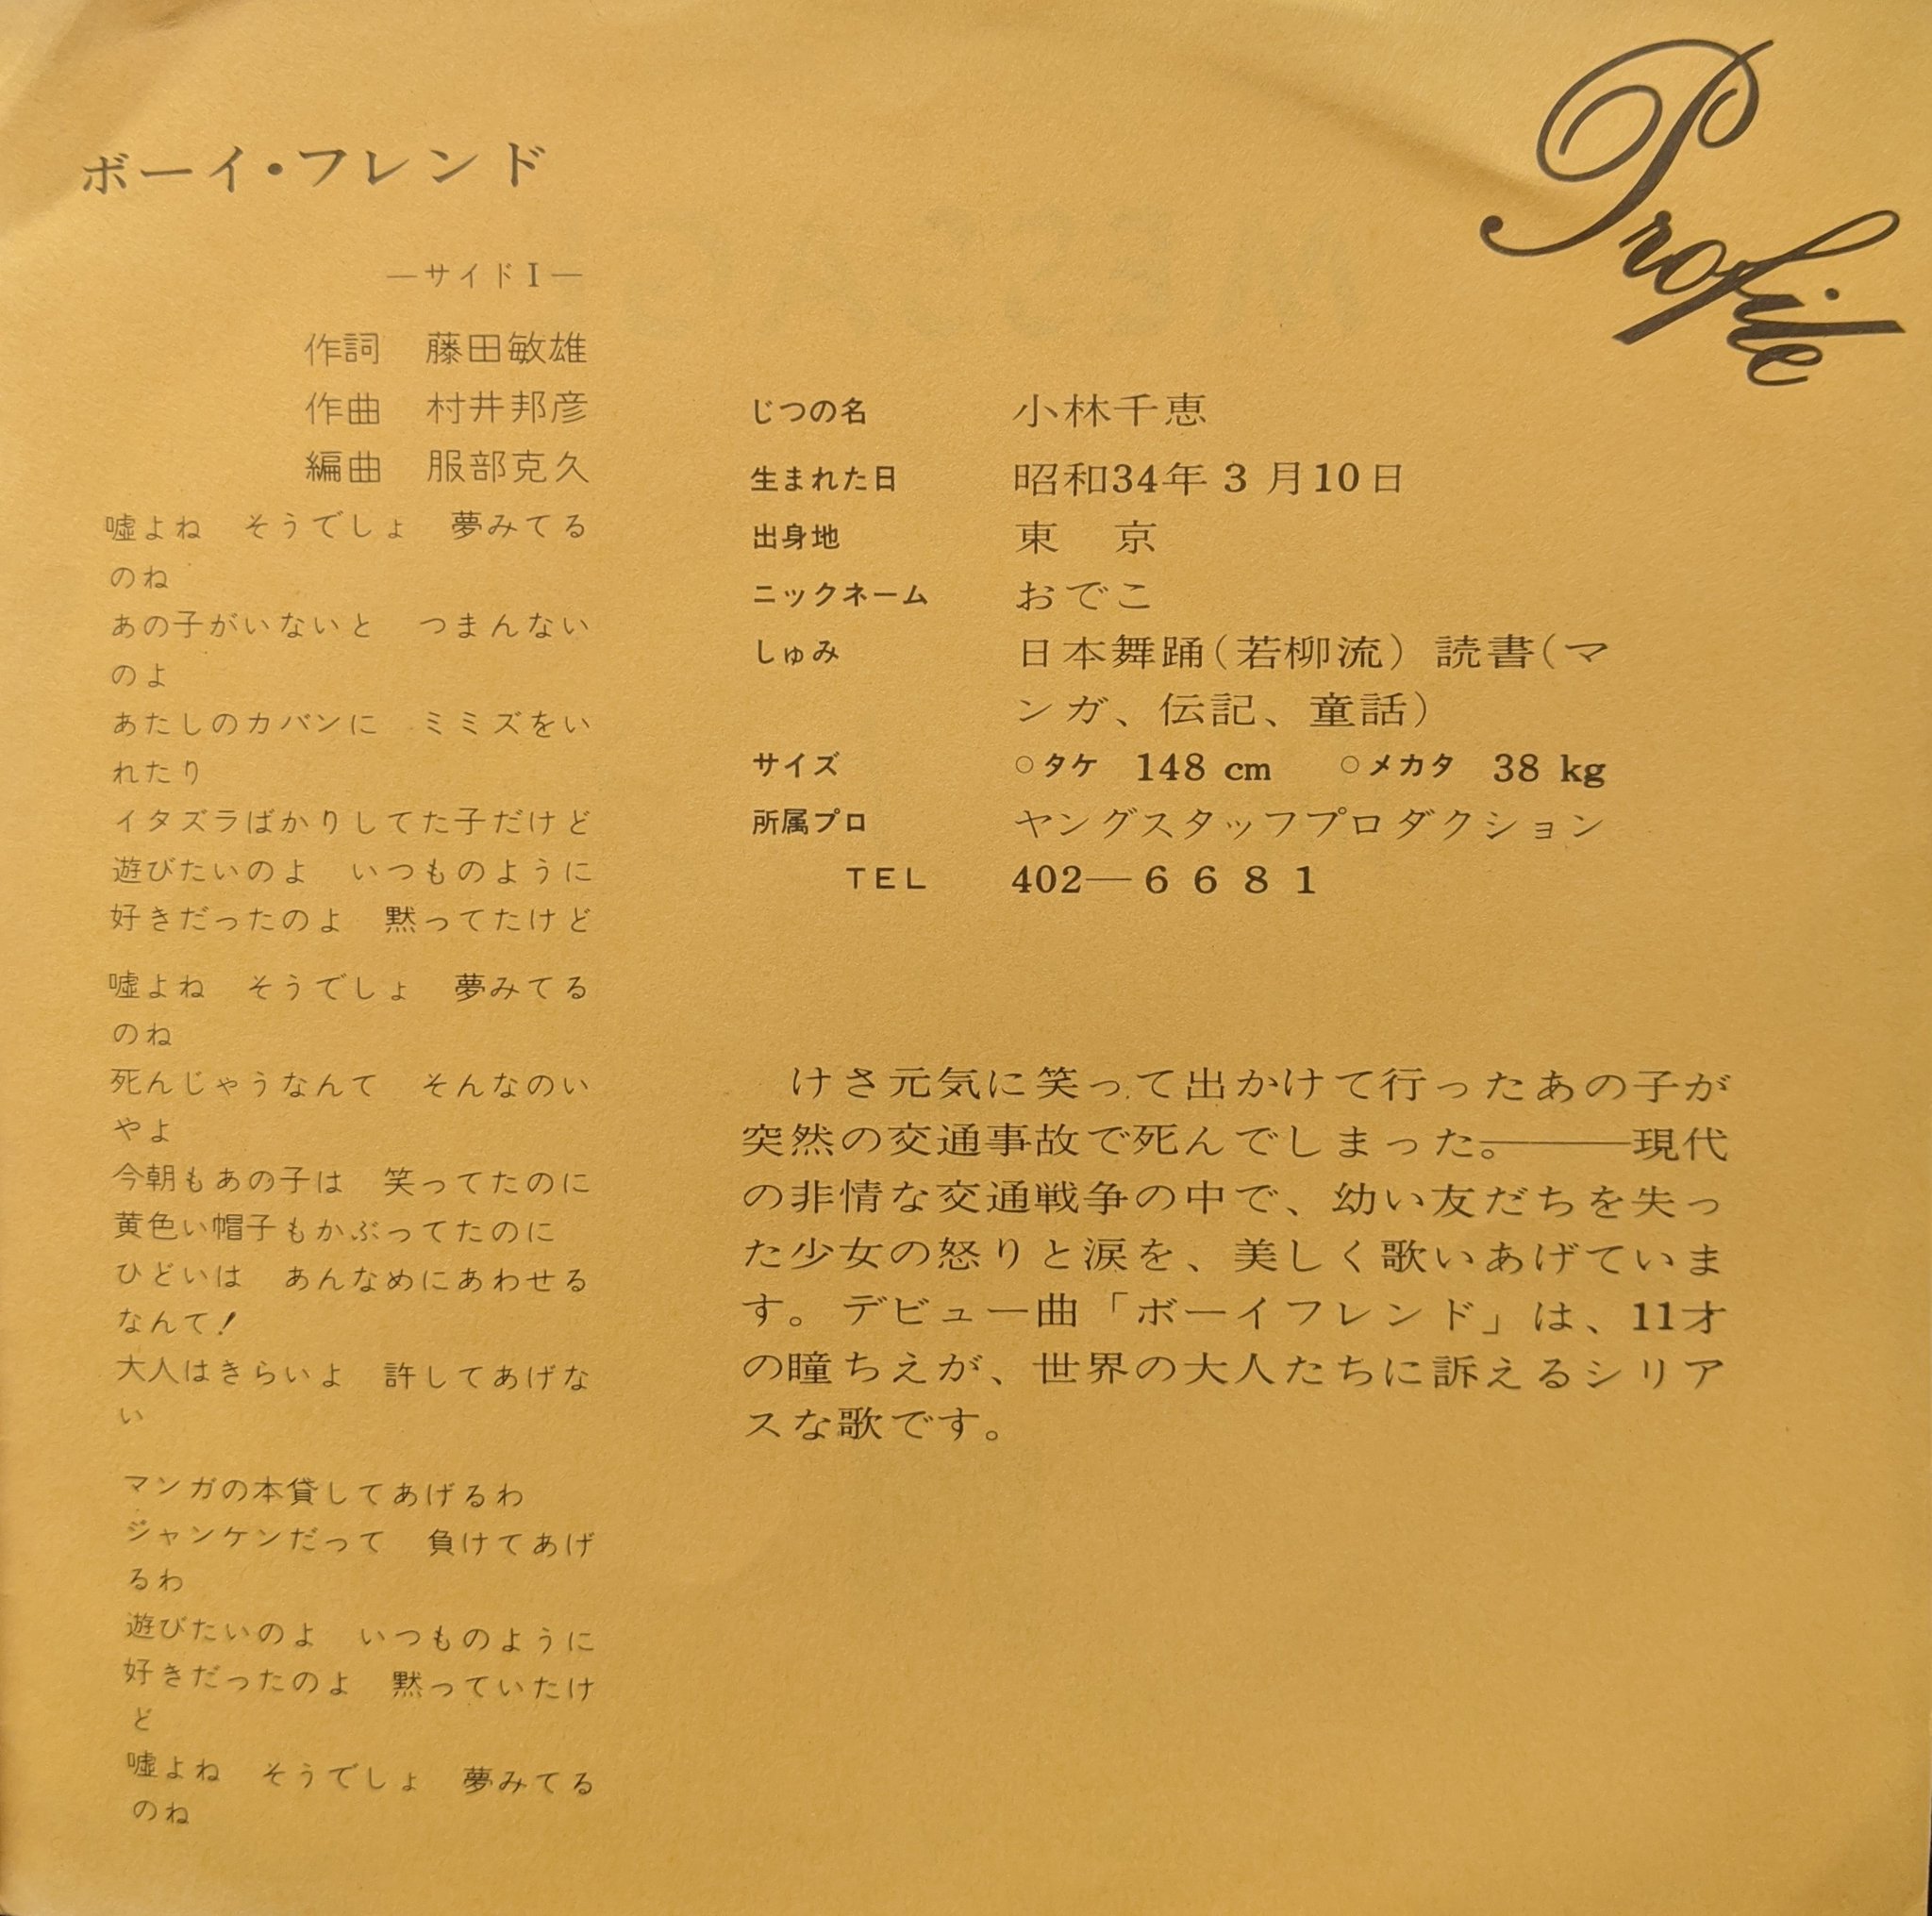 Profile
ボーイ・フレンド
―サイドI―
作詞　藤田敏雄
作曲　村井邦彦
編曲　服部克久
嘘よね　そうでしょ　夢みてる
のね
あの子がいないと　つまんない
のよ
あたしのカバンに　ミミズをい
れたり
イタズラばかりしてた子だけど
遊びたいのよ　いつものように
好きだったのよ　黙ってたけど
嘘よね　そうでしょ　夢みてる
のね
死んじゃうなんて　そんなのい
やよ
今朝もあの子は　笑ってたのに
黄色い帽子もかぶってたのに
ひどいは　あんなめにあわせる
なんて！
大人はきらいよ　許してあげな
い
マンガの本貸してあげるわ
ジャンケンだって　負けてあげ
るわ
遊びたいのよ　いつものように
好きだったのよ　黙っていたけ
ど
嘘よね　そうでしょ　夢みてる
のね
じつの名　小林千恵
生まれた日　昭和34年3月10日
出身地　東　京
ニックネーム　おでこ
しゅみ　日本舞踊（若柳流）読書（マ
ンガ、伝記、童話）
サイズ　○タケ　148 cm　○メカタ　38 kg
所属プロ　ヤングスタッフプロダクション
TEL　402―6681
けさ元気に笑って出かけて行ったあの子が
突然の交通事故で死んでしまった。―――現代
の非情な交通戦争の中で、幼い友だちを失っ
た少女の怒りと涙を、美しく歌いあげていま
す。デビュー曲「ボーイフレンド」は、11才
の瞳ちえが、世界の大人たちに訴えるシリア
スな歌です。